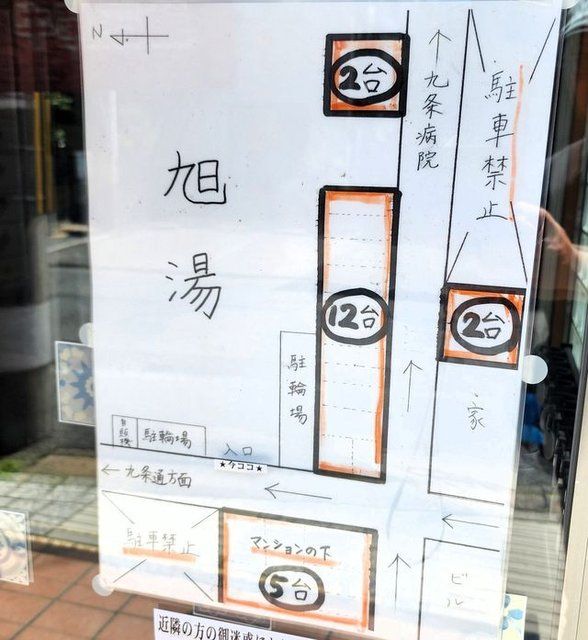 N
2台
九条病院
駐車禁止
旭湯
12台
2台
駐輪場
家
自販機
駐輪場
入口
★今ココ★
九条通方面
駐車禁止
マンションの下
5台
ビル
近隣の方の御迷惑に